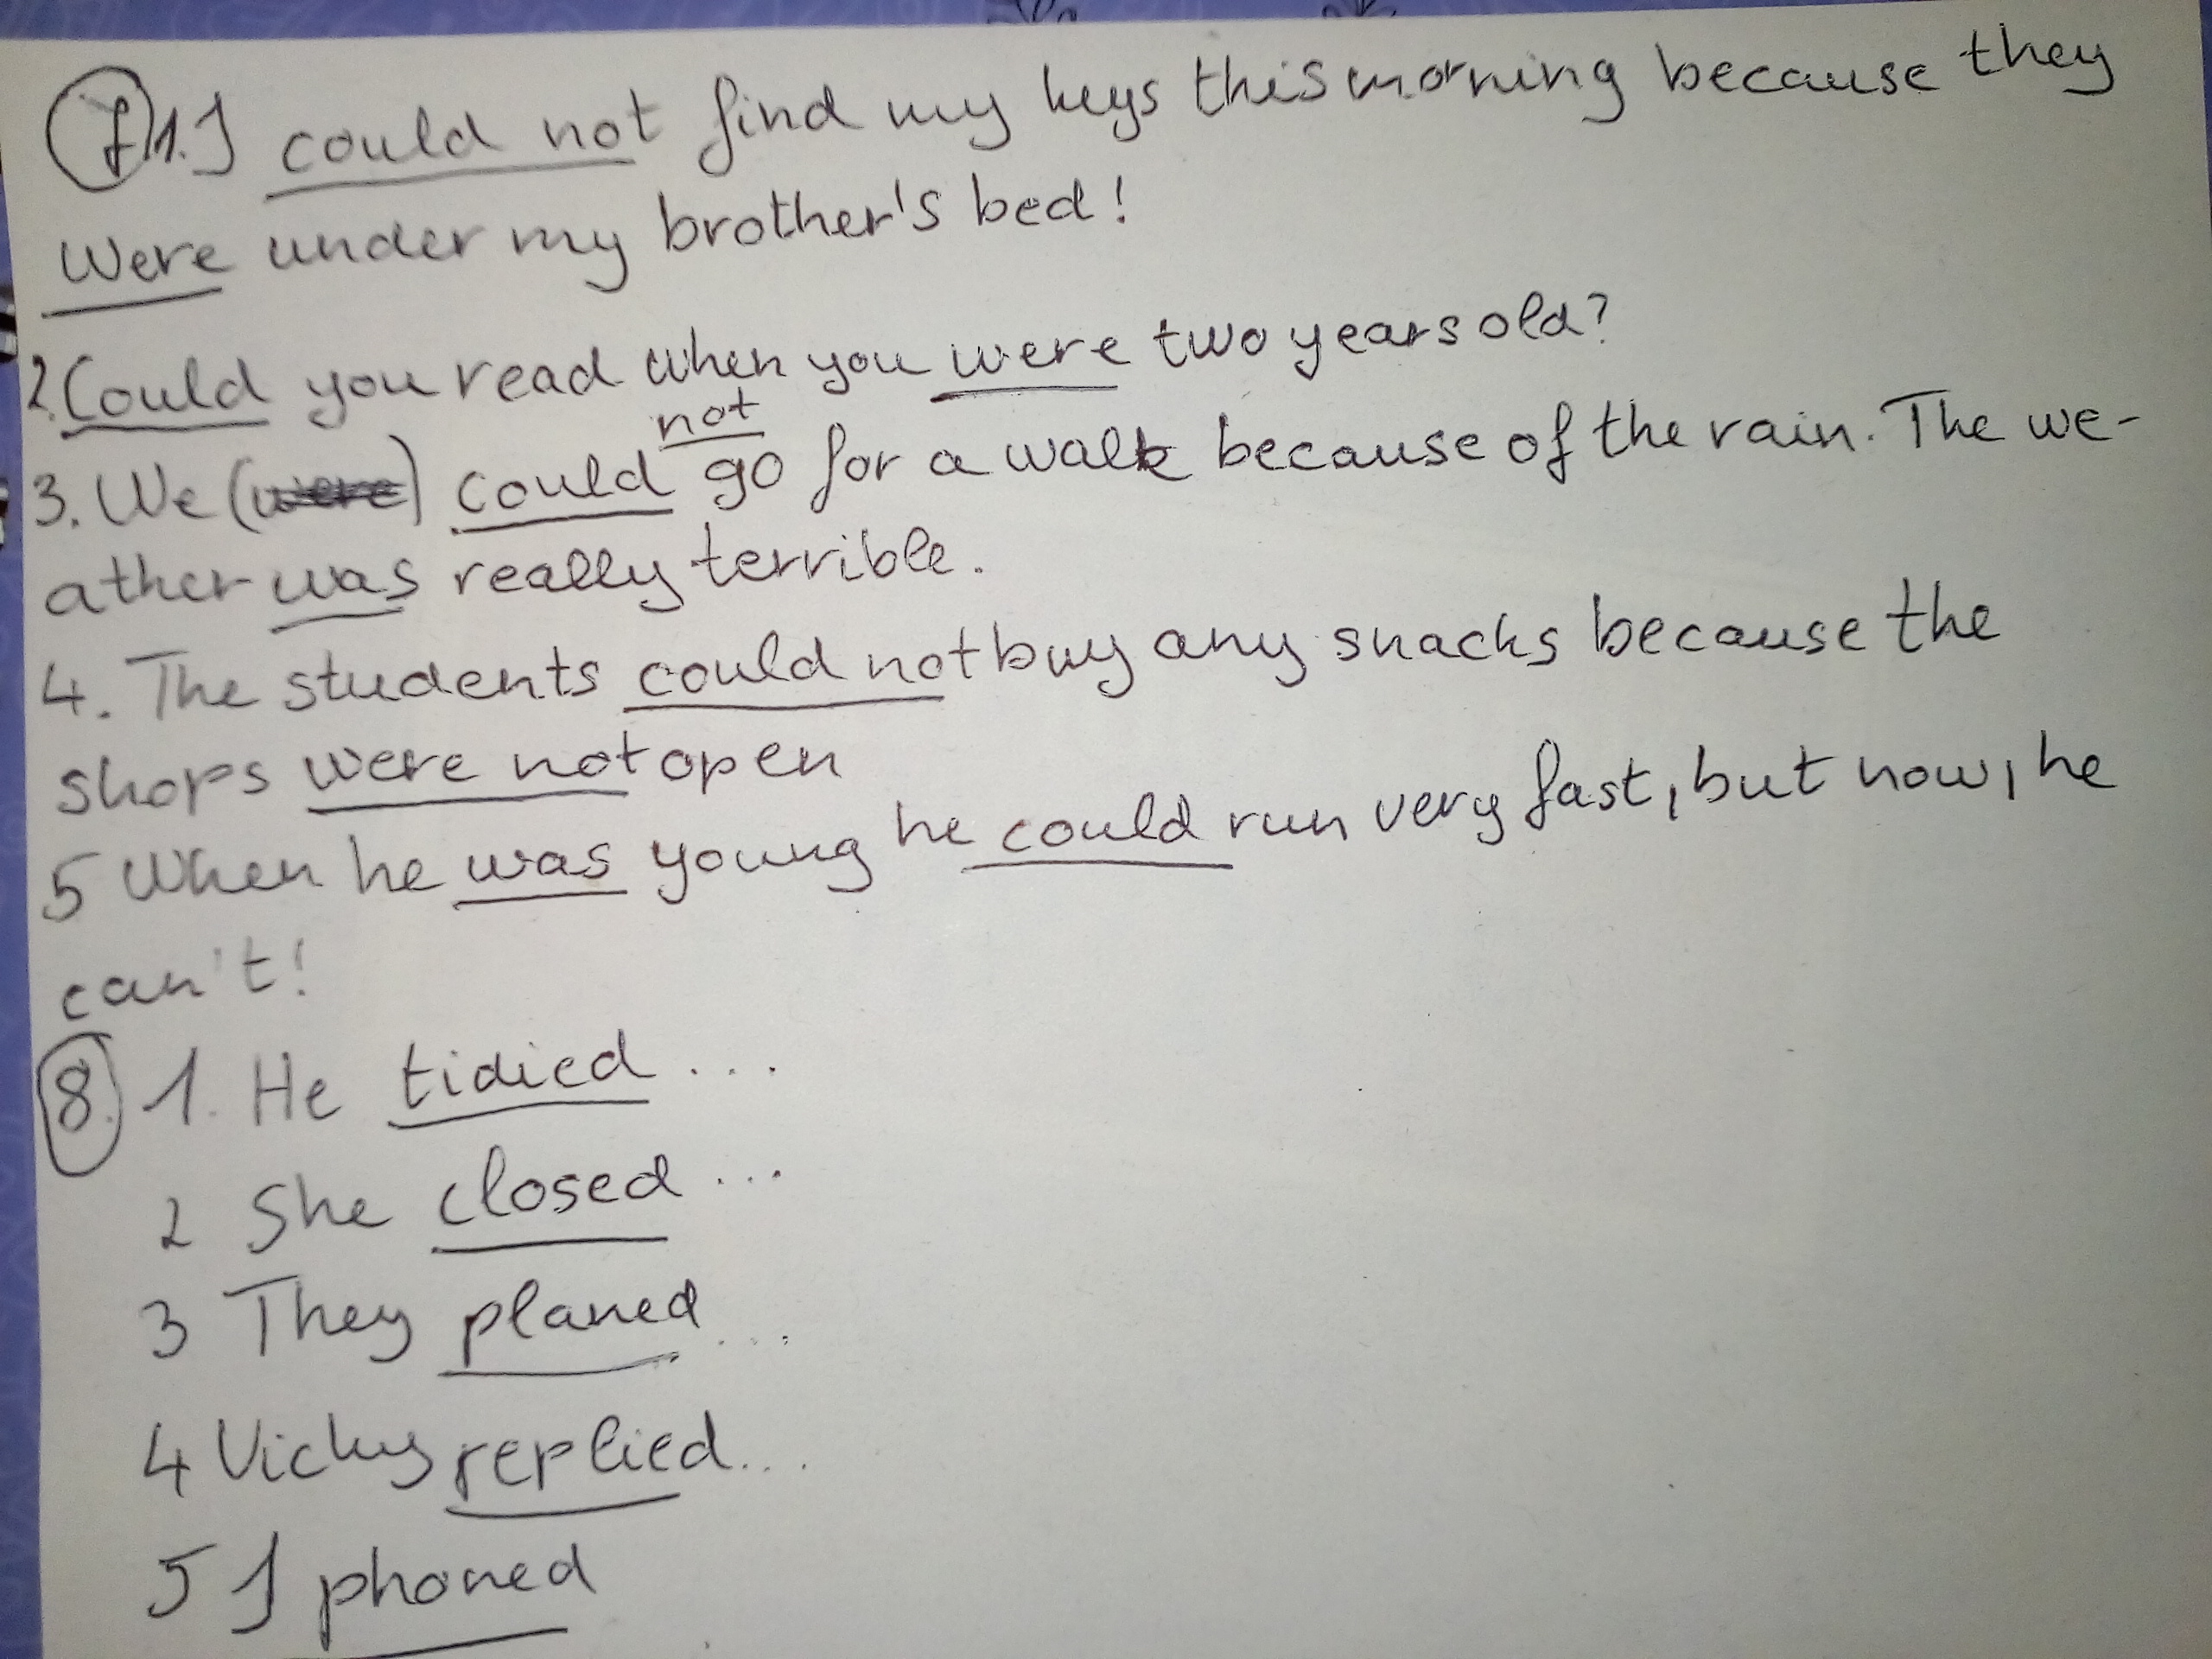 7 1. I could not find my keys this morning because they
were under my brother's bed!
2. Could you read when you were two years old?
not
3. We (were) could go for a walk because of the rain. The we-
ather was really terrible.
4. The students could not buy any snacks because the
shops were not open
5 When he was young he could run very fast, but now, he
can't!
8. 1. He tidied ...
2 She closed ...
3 They planed ...
4 Vicky replied...
5 I phoned